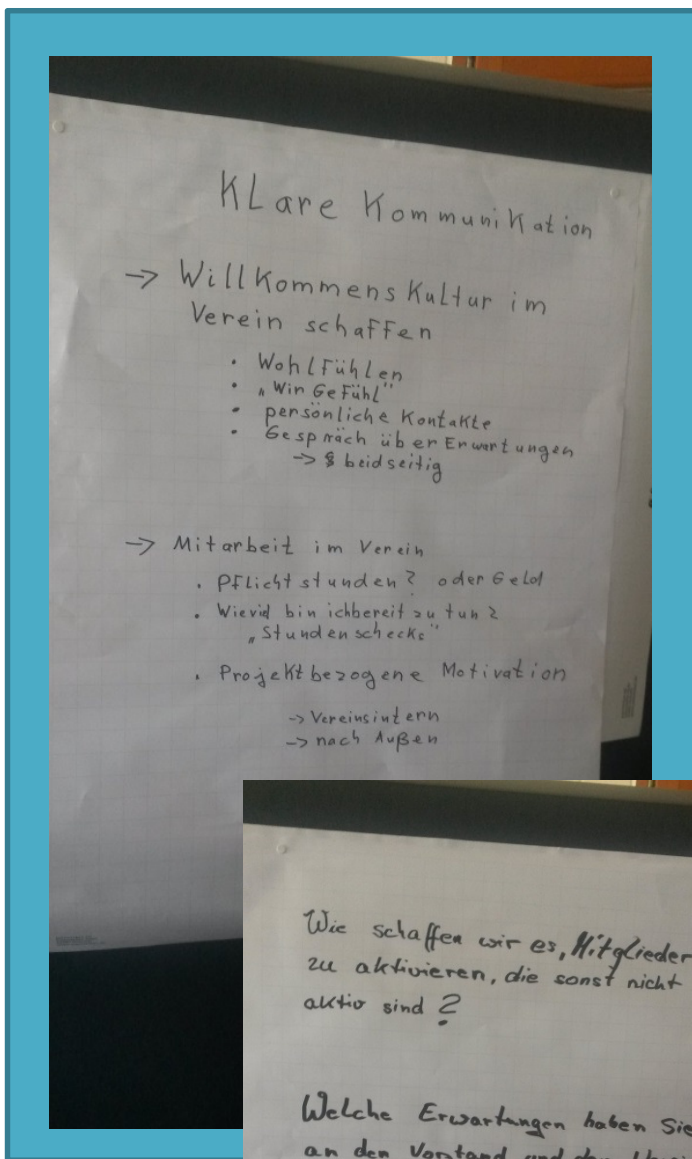 KLare Kommunikation
-> Willkommenskultur im
Verein schaffen
• Wohlfühlen
• „Wir Gefühl"
• persönliche Kontakte
• Gespräch über Erwartungen
-> beidseitig
-> Mitarbeit im Verein
• Pflichtstunden? oder Geld
• Wieviel bin ich bereit zu tun?
„Stundenschecks"
• Projektbezogene Motivation
-> Vereinsintern
-> nach Außen
Wie schaffen wir es, Mitglieder
zu aktivieren, die sonst nicht
aktiv sind?
Welche Erwartungen haben Sie
an den Vorstand und